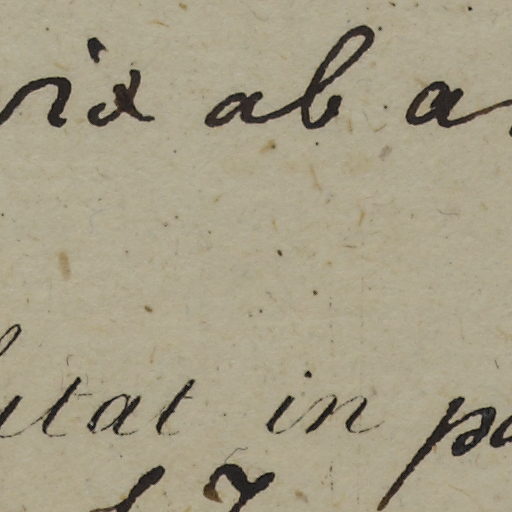 vix ab a
utat in pa